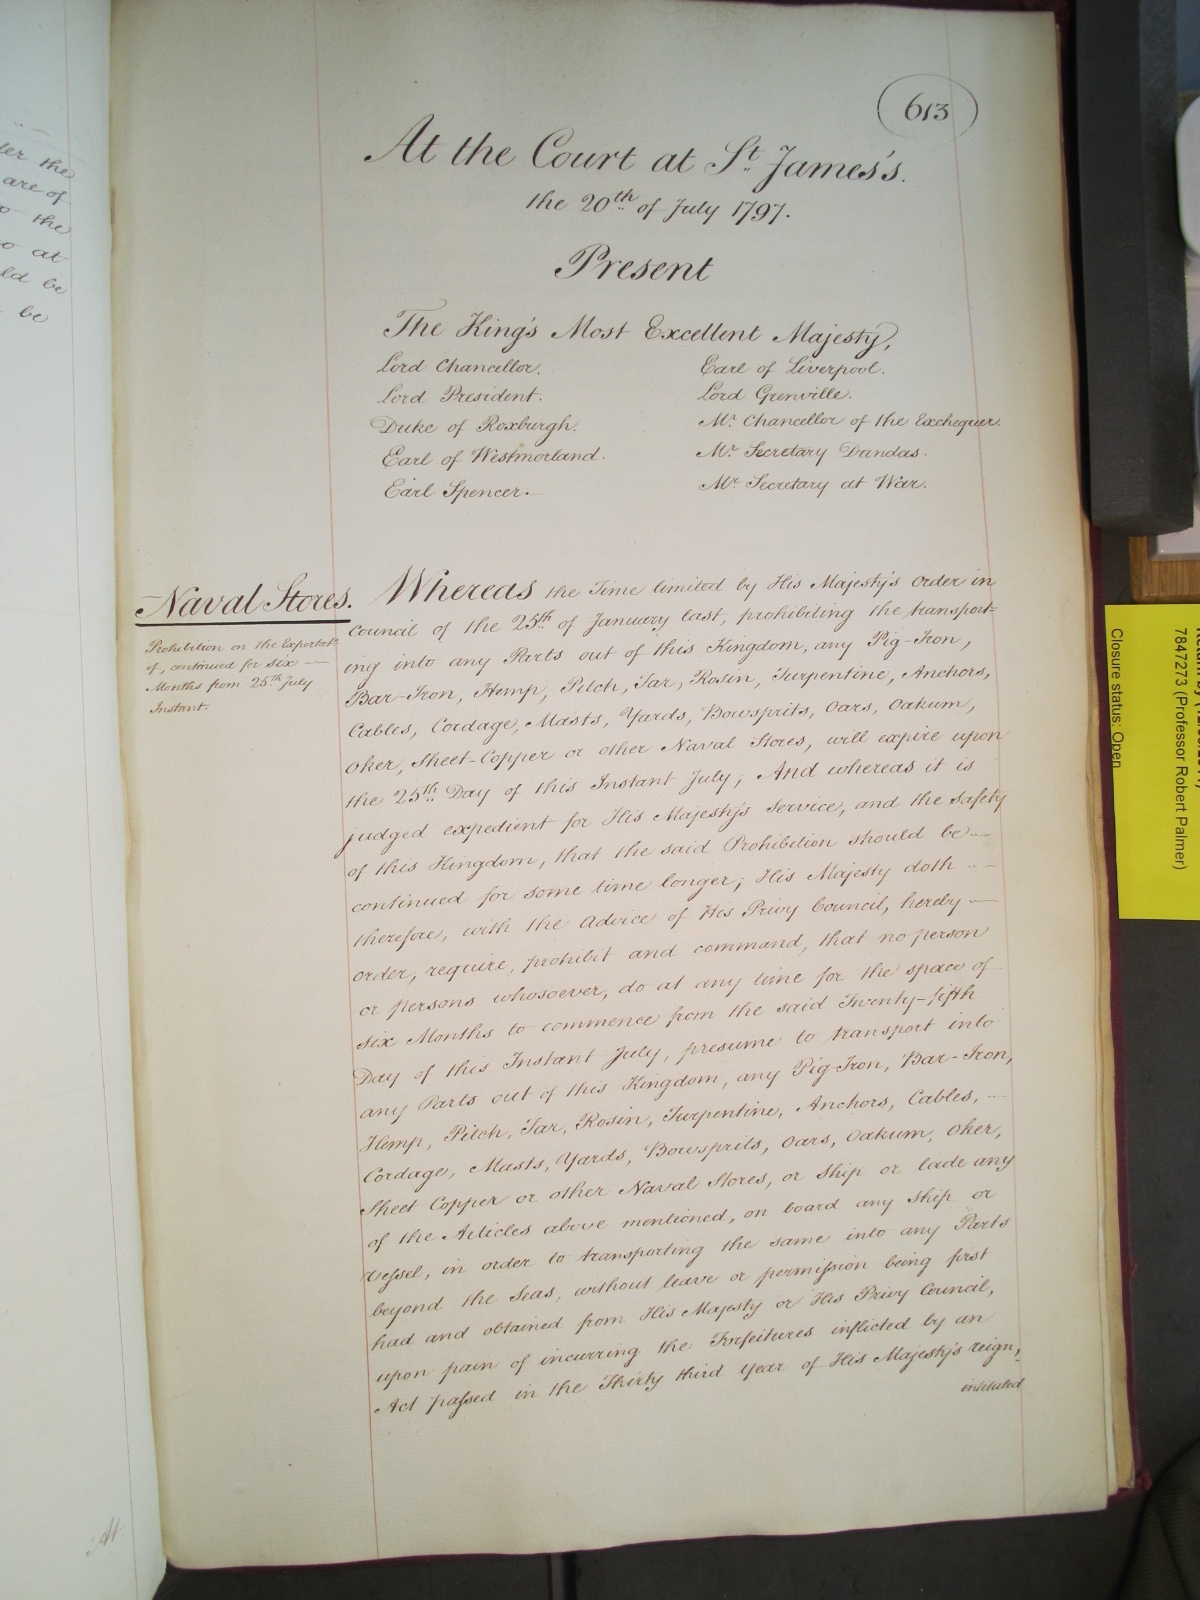 613
At the Court at St. James's.
the 20th of July 1797.
Present
The King's Most Excellent Majesty,
Lord Chancellor. Earl of Liverpool.
Lord President. Lord Grenville.
Duke of Roxburgh. Mr. Chancellor of the Exchequer.
Earl of Westmorland. Mr. Secretary Dundas.
Earl Spencer. Mr. Secretary at War.
Naval Stores.
Prohibition on the Exportat:
of, continued for six
Months from 25th July
Instant.
Whereas the Time limited by His Majesty's Order in
Council of the 25th of January last, prohibiting the transport=
ing into any Parts out of this Kingdom, any Pig-Iron,
Bar-Iron, Hemp, Pitch, Tar, Rosin, Turpentine, Anchors,
Cables, Cordage, Masts, Yards, Bowsprits, Oars, Oakum,
Oker, Sheet-Copper or other Naval Stores, will expire upon
the 25th Day of this Instant July; And whereas it is
judged expedient for His Majesty's Service, and the safety
of this Kingdom, that the said Prohibition should be
continued for some time longer; His Majesty doth
therefore, with the Advice of His Privy Council, hereby
order, require, prohibit and command, that no person
or persons whosoever, do at any time for the space of
six Months to commence from the said Twenty-fifth
Day of this Instant July, presume to transport into
any Parts out of this Kingdom, any Pig-Iron, Bar-Iron,
Hemp, Pitch, Tar, Rosin, Turpentine, Anchors, Cables,
Cordage, Masts, Yards, Bowsprits, Oars, Oakum, Oker,
Sheet Copper or other Naval Stores, or Ship or lade any
of the Articles above mentioned, on board any Ship or
Vessel, in order to transporting the same into any Parts
beyond the Seas, without leave or permission being first
had and obtained from His Majesty or His Privy Council,
upon pain of incurring the Forfeitures inflicted by an
Act passed in the Thirty third Year of His Majesty's reign,
intituled
the
are of
the
at
be
be
At
7847273 (Professor Robert Palmer)
Closure status: Open